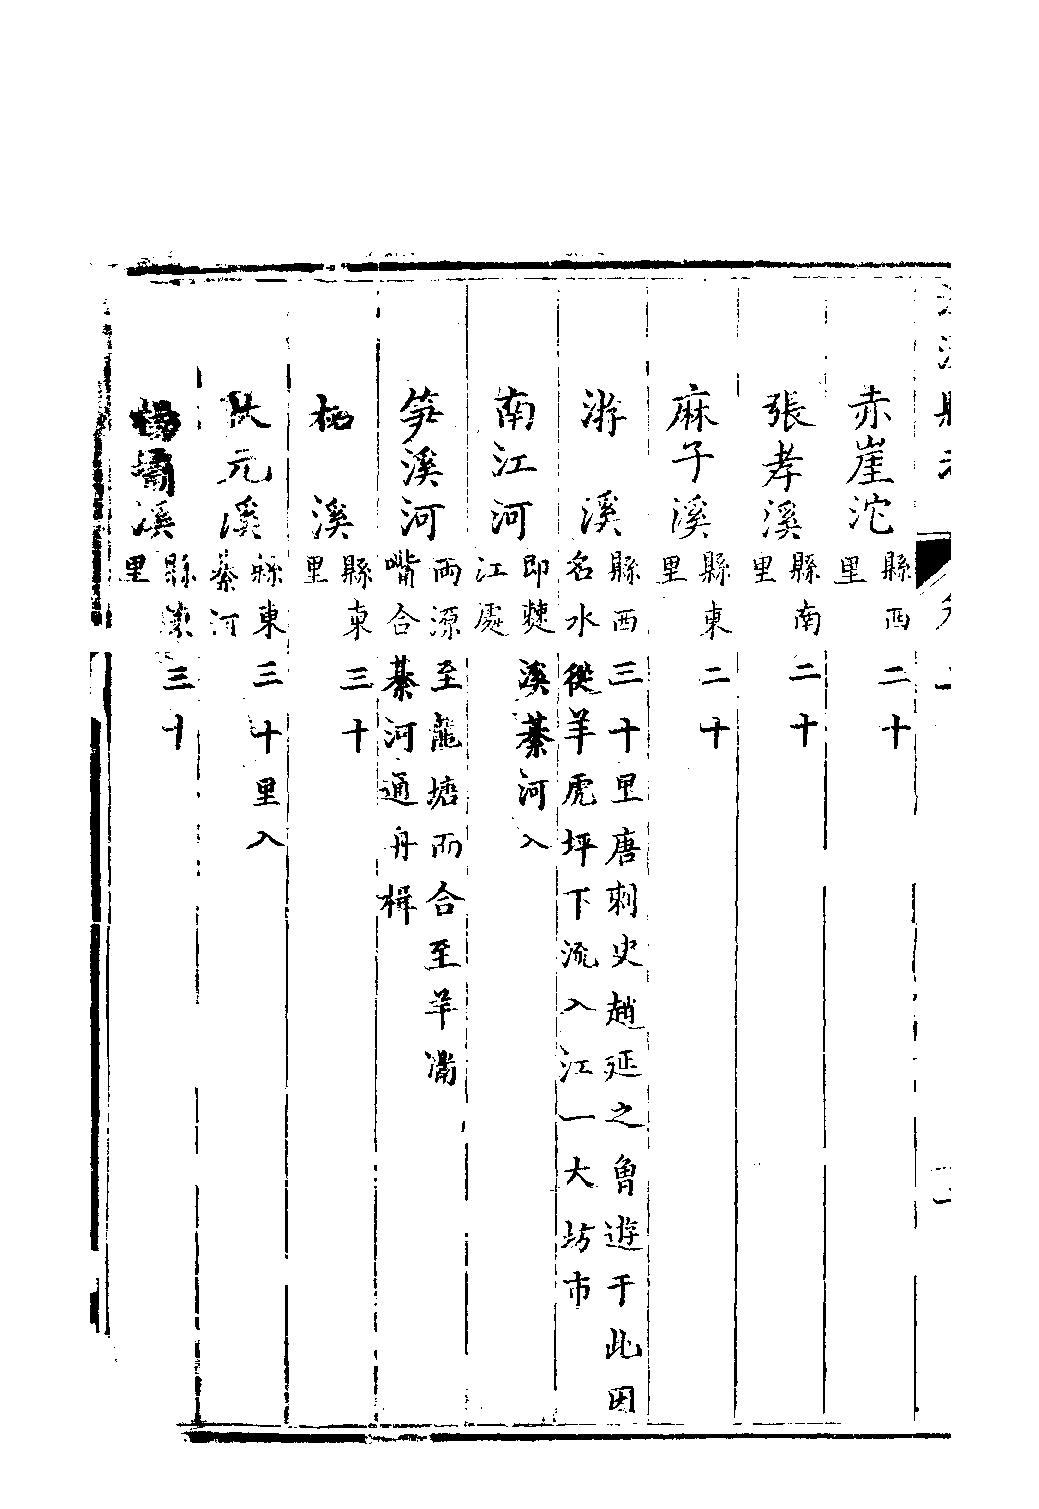 赤崖沱縣西二十里
張孝溪縣南二十里
麻子溪縣東二十里
游溪縣西三十里唐刺史趙延之曾遊于此因名水從羊虎坪下流入江一大坊市
南江河即㯟溪綦河入江處
笋溪河兩源至龍塘而合至羊溿嘴合綦河通舟楫
柲溪縣東三十里
扶元溪縣東三十里入綦河
溪縣東三十里